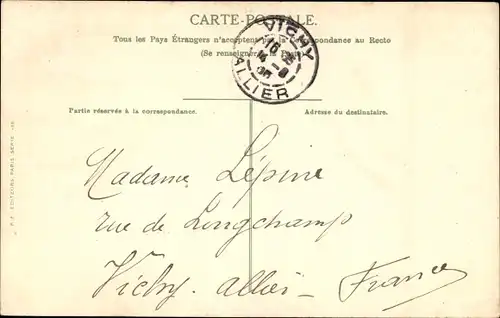 CARTE-POSTALE.
Tous les Pays Étrangers n'acceptent pas la Correspondance au Recto
(Se renseigner à la Poste)
VICHY
14 -8
ALLIER
Partie réservée à la correspondance.
Adresse du destinataire.
Madame Lépine
rue de Longchamp
Vichy. Allier - France
ÉDITEURS, PARIS